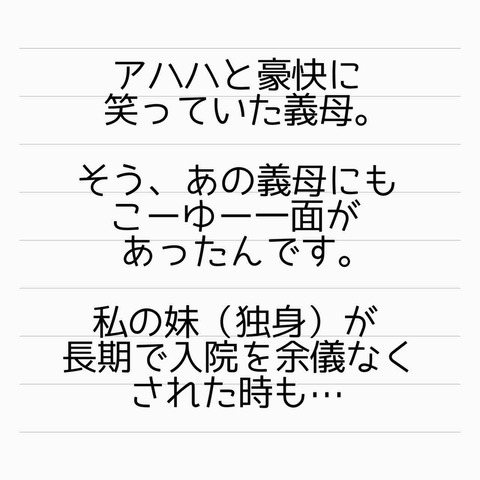 アハハと豪快に
笑っていた義母。
そう、あの義母にも
こーゆー一面が
あったんです。
私の妹（独身）が
長期で入院を余儀なく
された時も…